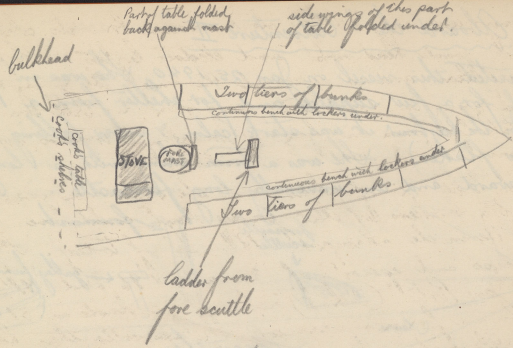 Part of table folded
back against mast
side wings of this part
of table (folded under.
bulkhead
Two tiers of bunks
continuous bench with lockers under.
Cook's table
Cook's shelves
STOVE
FORE
MAST
continuous bench with lockers under
Two tiers of bunks
ladder from
fore scuttle